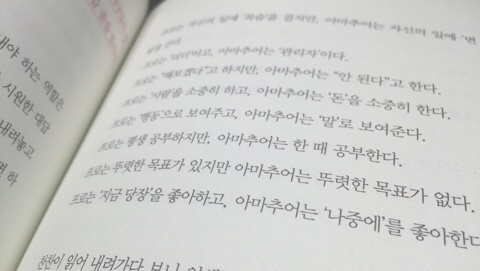 내야 하는 역할은
시원한 대답
내려놓고
면 하
프로는 자신의 일에 '목숨'을 걸지만, 아마추어는 자신의 일에 '변
명'을 건다.
프로는 '리더'이고, 아마추어는 '관리자'이다.
프로는 "해보겠다"고 하지만, 아마추어는 "안 된다"고 한다.
프로는 '사람'을 소중히 하고, 아마추어는 '돈'을 소중히 한다.
프로는 '행동'으로 보여주고, 아마추어는 '말'로 보여준다.
프로는 평생 공부하지만, 아마추어는 한 때 공부한다.
프로는 뚜렷한 목표가 있지만 아마추어는 뚜렷한 목표가 없다.
프로는 '지금 당장'을 좋아하고, 아마추어는 '나중에'를 좋아한다
찬찬이 읽어 내려가다 보니